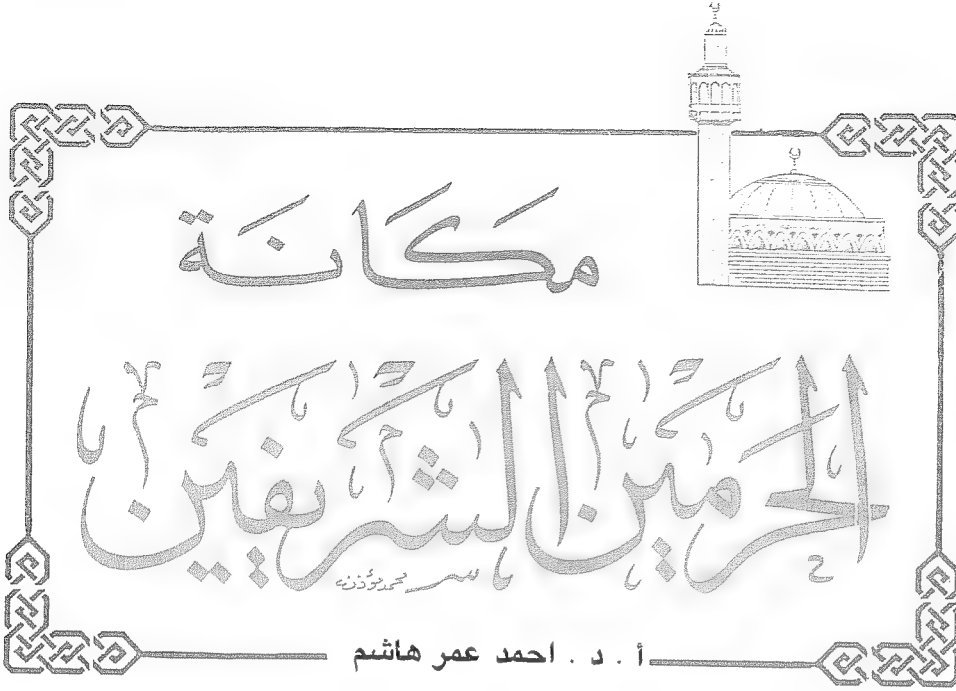 مَكَانَة
الحرمين الشريفين
أ . د . احمد عمر هاشم